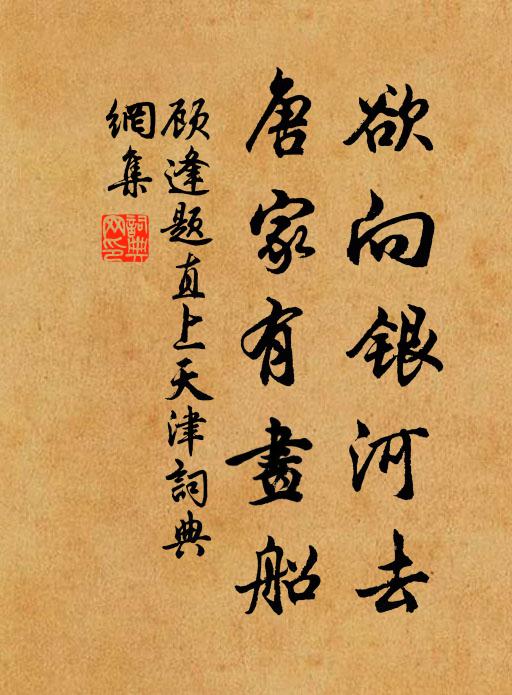 欲向銀河去
唐家有畫船
顾逢题直上天津詞典
網集
詞典網印